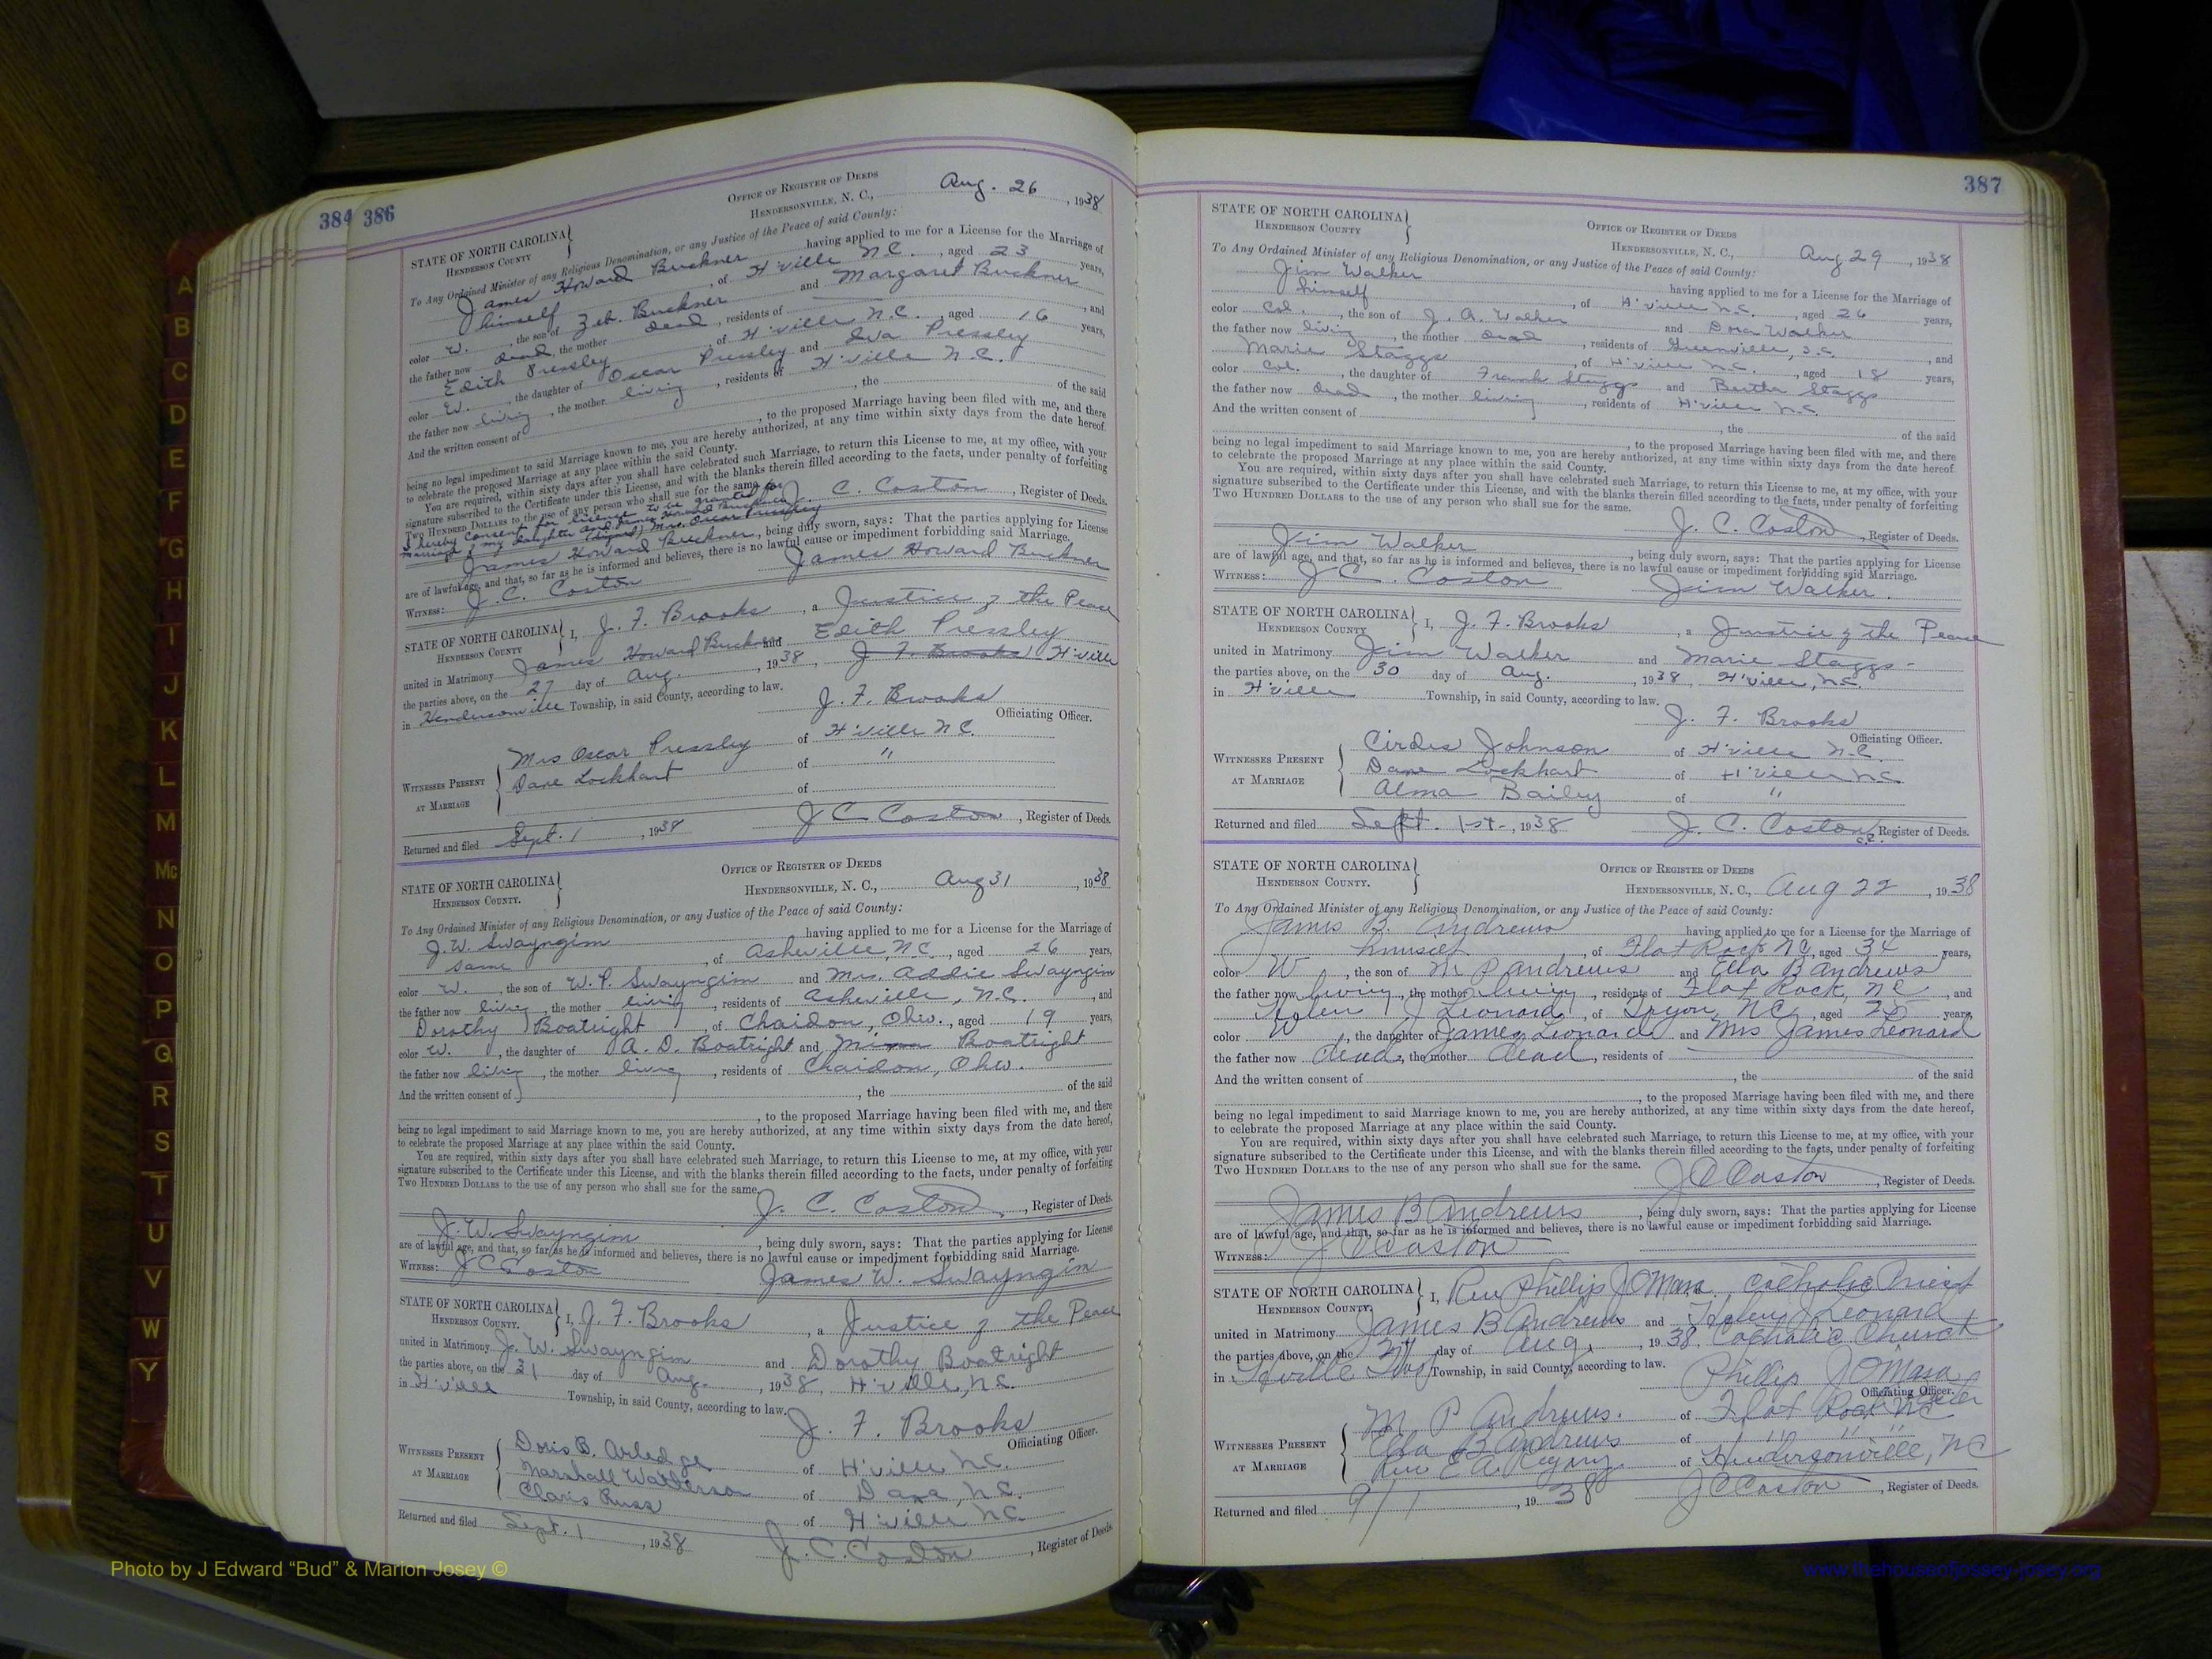 384 386
OFFICE OF REGISTER OF DEEDS
HENDERSONVILLE, N. C., Aug. 26, 1938
STATE OF NORTH CAROLINA
HENDERSON COUNTY
To Any Ordained Minister of any Religious Denomination, or any Justice of the Peace of said County:
James Howard Buckner having applied to me for a License for the Marriage of
himself, of H'ville N.C., aged 23 years,
color W., the son of Zeb. Buckner and Margaret Buckner
the father now dead, the mother dead, residents of , and
Edith Pressley of H'ville N.C., aged 16 years,
color W., the daughter of Oscar Pressley and Iva Pressley
the father now living, the mother living, residents of H'ville N.C.
And the written consent of , the of the said
, to the proposed Marriage having been filed with me, and there
being no legal impediment to said Marriage known to me, you are hereby authorized, at any time within sixty days from the date hereof,
to celebrate the proposed Marriage at any place within the said County.
You are required, within sixty days after you shall have celebrated such Marriage, to return this License to me, at my office, with your
signature subscribed to the Certificate under this License, and with the blanks therein filled according to the facts, under penalty of forfeiting
TWO HUNDRED DOLLARS to the use of any person who shall sue for the same.
J. C. Coston, Register of Deeds.
I hereby consent for license to be granted for
marriage of my daughter and James Howard Buckner
(signed) Mrs. Oscar Pressley
James Howard Buckner, being duly sworn, says: That the parties applying for License
are of lawful age, and that, so far as he is informed and believes, there is no lawful cause or impediment forbidding said Marriage.
WITNESS: J. C. Coston James Howard Buckner
STATE OF NORTH CAROLINA
HENDERSON COUNTY
I, J. F. Brooks, a Justice of the Peace
united in Matrimony James Howard Buckner and Edith Pressley
the parties above, on the 27 day of Aug., 1938, J. F. Brooks H'ville
in Hendersonville Township, in said County, according to law.
J. F. Brooks
Officiating Officer.
WITNESSES PRESENT AT MARRIAGE
Mrs Oscar Pressley of H'ville N C.
Dave Lockhart of "
of
Returned and filed Sept. 1, 1938 J C Coston, Register of Deeds.
OFFICE OF REGISTER OF DEEDS
HENDERSONVILLE, N. C., Aug 31, 1938
STATE OF NORTH CAROLINA
HENDERSON COUNTY.
To Any Ordained Minister of any Religious Denomination, or any Justice of the Peace of said County:
J. W. Swayngim having applied to me for a License for the Marriage of
same, of Asheville, N.C., aged 26 years,
color W., the son of W. P. Swayngim and Mrs. Addie Swayngim
the father now living, the mother living, residents of Asheville, N.C., and
Dorothy Boatright, of Chaidon, Ohio., aged 19 years,
color W., the daughter of A. D. Boatright and Boatright
the father now living, the mother living, residents of Chaidon, Ohio.
And the written consent of , the of the said
, to the proposed Marriage having been filed with me, and there
being no legal impediment to said Marriage known to me, you are hereby authorized, at any time within sixty days from the date hereof,
to celebrate the proposed Marriage at any place within the said County.
You are required, within sixty days after you shall have celebrated such Marriage, to return this License to me, at my office, with your
signature subscribed to the Certificate under this License, and with the blanks therein filled according to the facts, under penalty of forfeiting
TWO HUNDRED DOLLARS to the use of any person who shall sue for the same.
J. C. Coston, Register of Deeds.
J. W. Swayngim, being duly sworn, says: That the parties applying for License
are of lawful age, and that, so far as he is informed and believes, there is no lawful cause or impediment forbidding said Marriage.
WITNESS: J C Coston James W. Swayngim
STATE OF NORTH CAROLINA
HENDERSON COUNTY.
I, J. F. Brooks, a Justice of the Peace
united in Matrimony J. W. Swayngim and Dorothy Boatright
the parties above, on the 31 day of Aug., 1938, H'ville, N.C.
in H'ville Township, in said County, according to law.
J. F. Brooks
Officiating Officer.
WITNESSES PRESENT AT MARRIAGE
Doris B. Arledge of H'ville N.C.
Marshall Watterson of Dana, N.C.
Claris Russ of H'ville N.C.
Returned and filed Sept. 1, 1938 J. C. Coston, Register of Deeds.
387
STATE OF NORTH CAROLINA
HENDERSON COUNTY
OFFICE OF REGISTER OF DEEDS
HENDERSONVILLE, N. C., Aug 29, 1938
To Any Ordained Minister of any Religious Denomination, or any Justice of the Peace of said County:
Jim Walker having applied to me for a License for the Marriage of
himself, of H'ville N.C., aged 26 years,
color Col., the son of J. A. Walker and Dora Walker
the father now living, the mother dead, residents of Greenville, S.C., and
Marie Staggs, of H'ville N.C., aged 18 years,
color Col., the daughter of Frank Staggs and Bertha Staggs
the father now dead, the mother living, residents of H'ville N.C.
And the written consent of , the of the said
, to the proposed Marriage having been filed with me, and there
being no legal impediment to said Marriage known to me, you are hereby authorized, at any time within sixty days from the date hereof.
to celebrate the proposed Marriage at any place within the said County.
You are required, within sixty days after you shall have celebrated such Marriage, to return this License to me, at my office, with your
signature subscribed to the Certificate under this License, and with the blanks therein filled according to the facts, under penalty of forfeiting
TWO HUNDRED DOLLARS to the use of any person who shall sue for the same.
J. C. Coston, Register of Deeds.
Jim Walker, being duly sworn, says: That the parties applying for License
are of lawful age, and that, so far as he is informed and believes, there is no lawful cause or impediment forbidding said Marriage.
WITNESS: J C. Coston Jim Walker.
STATE OF NORTH CAROLINA
HENDERSON COUNTY
I, J. F. Brooks, a Justice of the Peace
united in Matrimony Jim Walker and Marie Staggs-
the parties above, on the 30 day of Aug., 1938, H'ville, N.C.
in H'ville Township, in said County, according to law.
J. F. Brooks
Officiating Officer.
WITNESSES PRESENT AT MARRIAGE
Cirdes Johnson of H'ville N.C.
Dave Lockhart of H'ville N.C.
Alma Bailey of "
Returned and filed Sept. 1st., 1938 J. C. Coston, Register of Deeds.
STATE OF NORTH CAROLINA
HENDERSON COUNTY.
OFFICE OF REGISTER OF DEEDS
HENDERSONVILLE, N. C., Aug 22, 1938
To Any Ordained Minister of any Religious Denomination, or any Justice of the Peace of said County:
James B. Andrews having applied to me for a License for the Marriage of
himself, of Flat Rock NC, aged 34 years,
color W, the son of M P Andrews and Ella B Andrews
the father now living, the mother living, residents of Flat Rock, NC, and
Helen J Leonard, of Tryon, NC, aged 25 years,
color W, the daughter of James Leonard and Mrs James Leonard
the father now dead, the mother dead, residents of
And the written consent of , the of the said
, to the proposed Marriage having been filed with me, and there
being no legal impediment to said Marriage known to me, you are hereby authorized, at any time within sixty days from the date hereof,
to celebrate the proposed Marriage at any place within the said County.
You are required, within sixty days after you shall have celebrated such Marriage, to return this License to me, at my office, with your
signature subscribed to the Certificate under this License, and with the blanks therein filled according to the facts, under penalty of forfeiting
TWO HUNDRED DOLLARS to the use of any person who shall sue for the same.
J C Coston, Register of Deeds.
James B Andrews, being duly sworn, says: That the parties applying for License
are of lawful age, and that, so far as he is informed and believes, there is no lawful cause or impediment forbidding said Marriage.
WITNESS: J C Coston
STATE OF NORTH CAROLINA
HENDERSON COUNTY.
I, Rev Phillip J OMara, Catholic Priest
united in Matrimony James B Andrews and Helen J Leonard
the parties above, on the day of Aug, 1938, Catholic Church
in Hville Township, in said County, according to law.
Phillip J OMara
Officiating Officer.
WITNESSES PRESENT AT MARRIAGE
M P Andrews. of Flat Rock NC
Ella B Andrews of " " "
Rev E. A. of Hendersonville, NC
Returned and filed 9/1, 1938 J C Coston, Register of Deeds.
A
B
C
D
E
F
G
H
I
J
K
L
M
Mc
N
O
P
Q
R
S
T
U
V
W
Y
Photo by J Edward "Bud" & Marion Josey ©
www.thehouseofjossey-josey.org